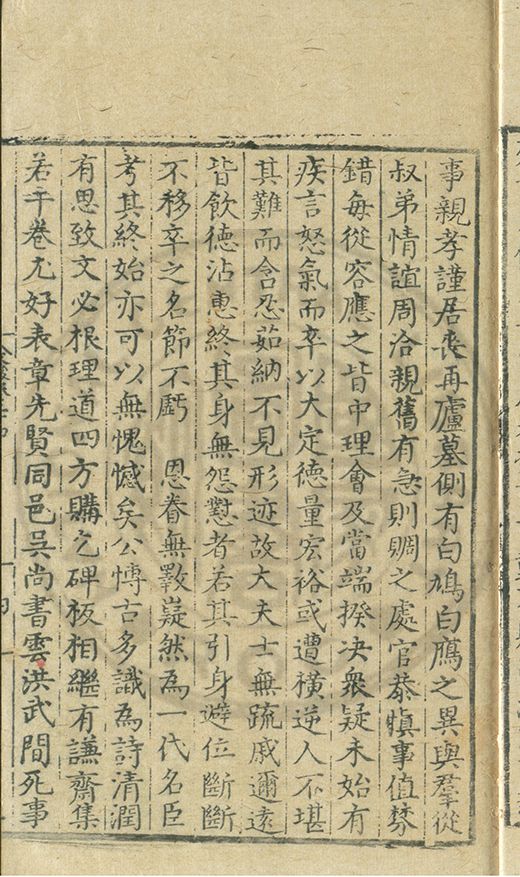 事親孝謹居喪再廬墓側有白鳩白鴈之異與羣從
叔弟情誼周洽親舊有急則賙之處官恭慎事值棼
錯每從容應之皆中理會及當端揆决衆疑未始有
疾言怒氣而卒以大定德量宏裕或遭橫逆人不堪
其難而含忍茹納不見形迹故大夫士無疏戚邇遠
皆飲德沾惠終其身無怨懟者若其引身避位斷斷
不移卒之名節不虧　恩眷無斁嶷然為一代名臣
考其終始亦可以無愧憾矣公博古多識為詩清潤
有思致文必根理道四方購乞碑板相繼有謙齋集
若干卷尤好表章先賢同邑吳尚書雲洪武間死事